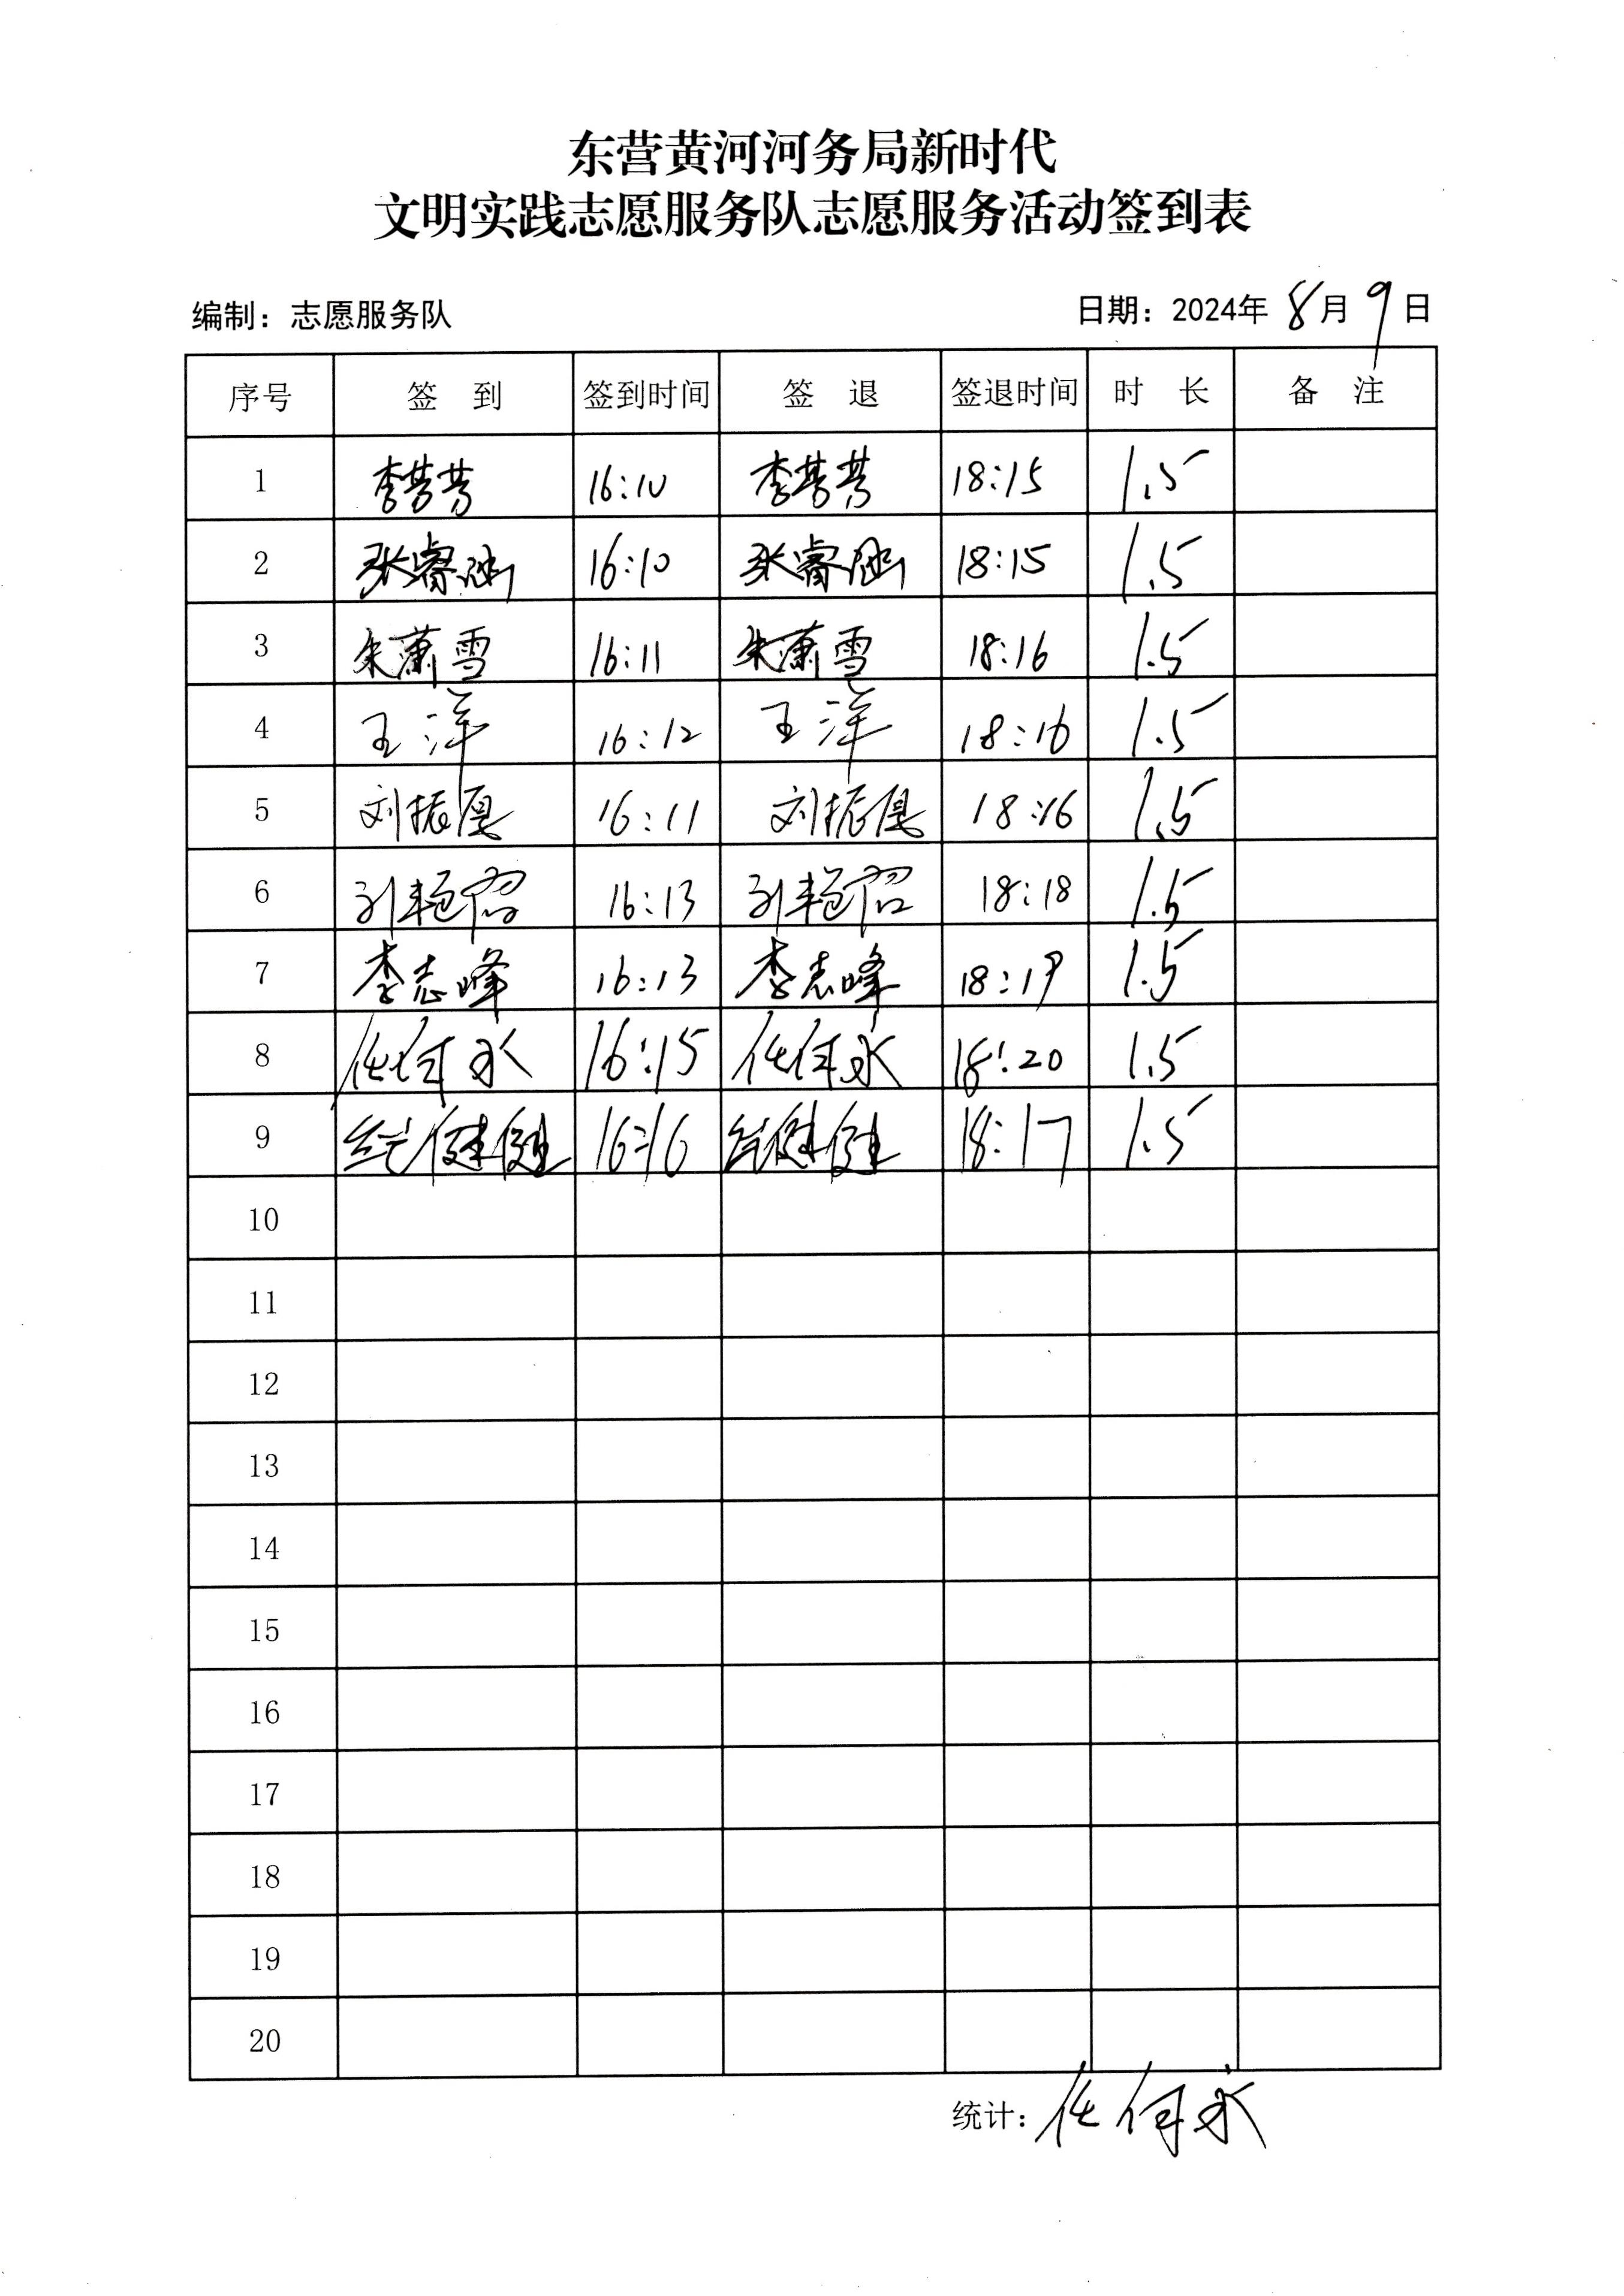 东营黄河河务局新时代
文明实践志愿服务队志愿服务活动签到表
编制：志愿服务队 日期：2024年 8月 9日
序号 签 到 签到时间 签 退 签退时间 时 长 备 注
1 李芳芳 16:10 李芳芳 18:15 1.5
2 张睿涵 16:10 张睿涵 18:15 1.5
3 朱潇雪 16:11 朱潇雪 18:16 1.5
4 王洋 16:12 王洋 18:16 1.5
5 刘振厚 16:11 刘振厚 18:16 1.5
6 刘艳君 16:13 刘艳君 18:18 1.5
7 李志峰 16:13 李志峰 18:19 1.5
8 16:15 18:20 1.5
9 16:16 18:17 1.5
10
11
12
13
14
15
16
17
18
19
20
统计：